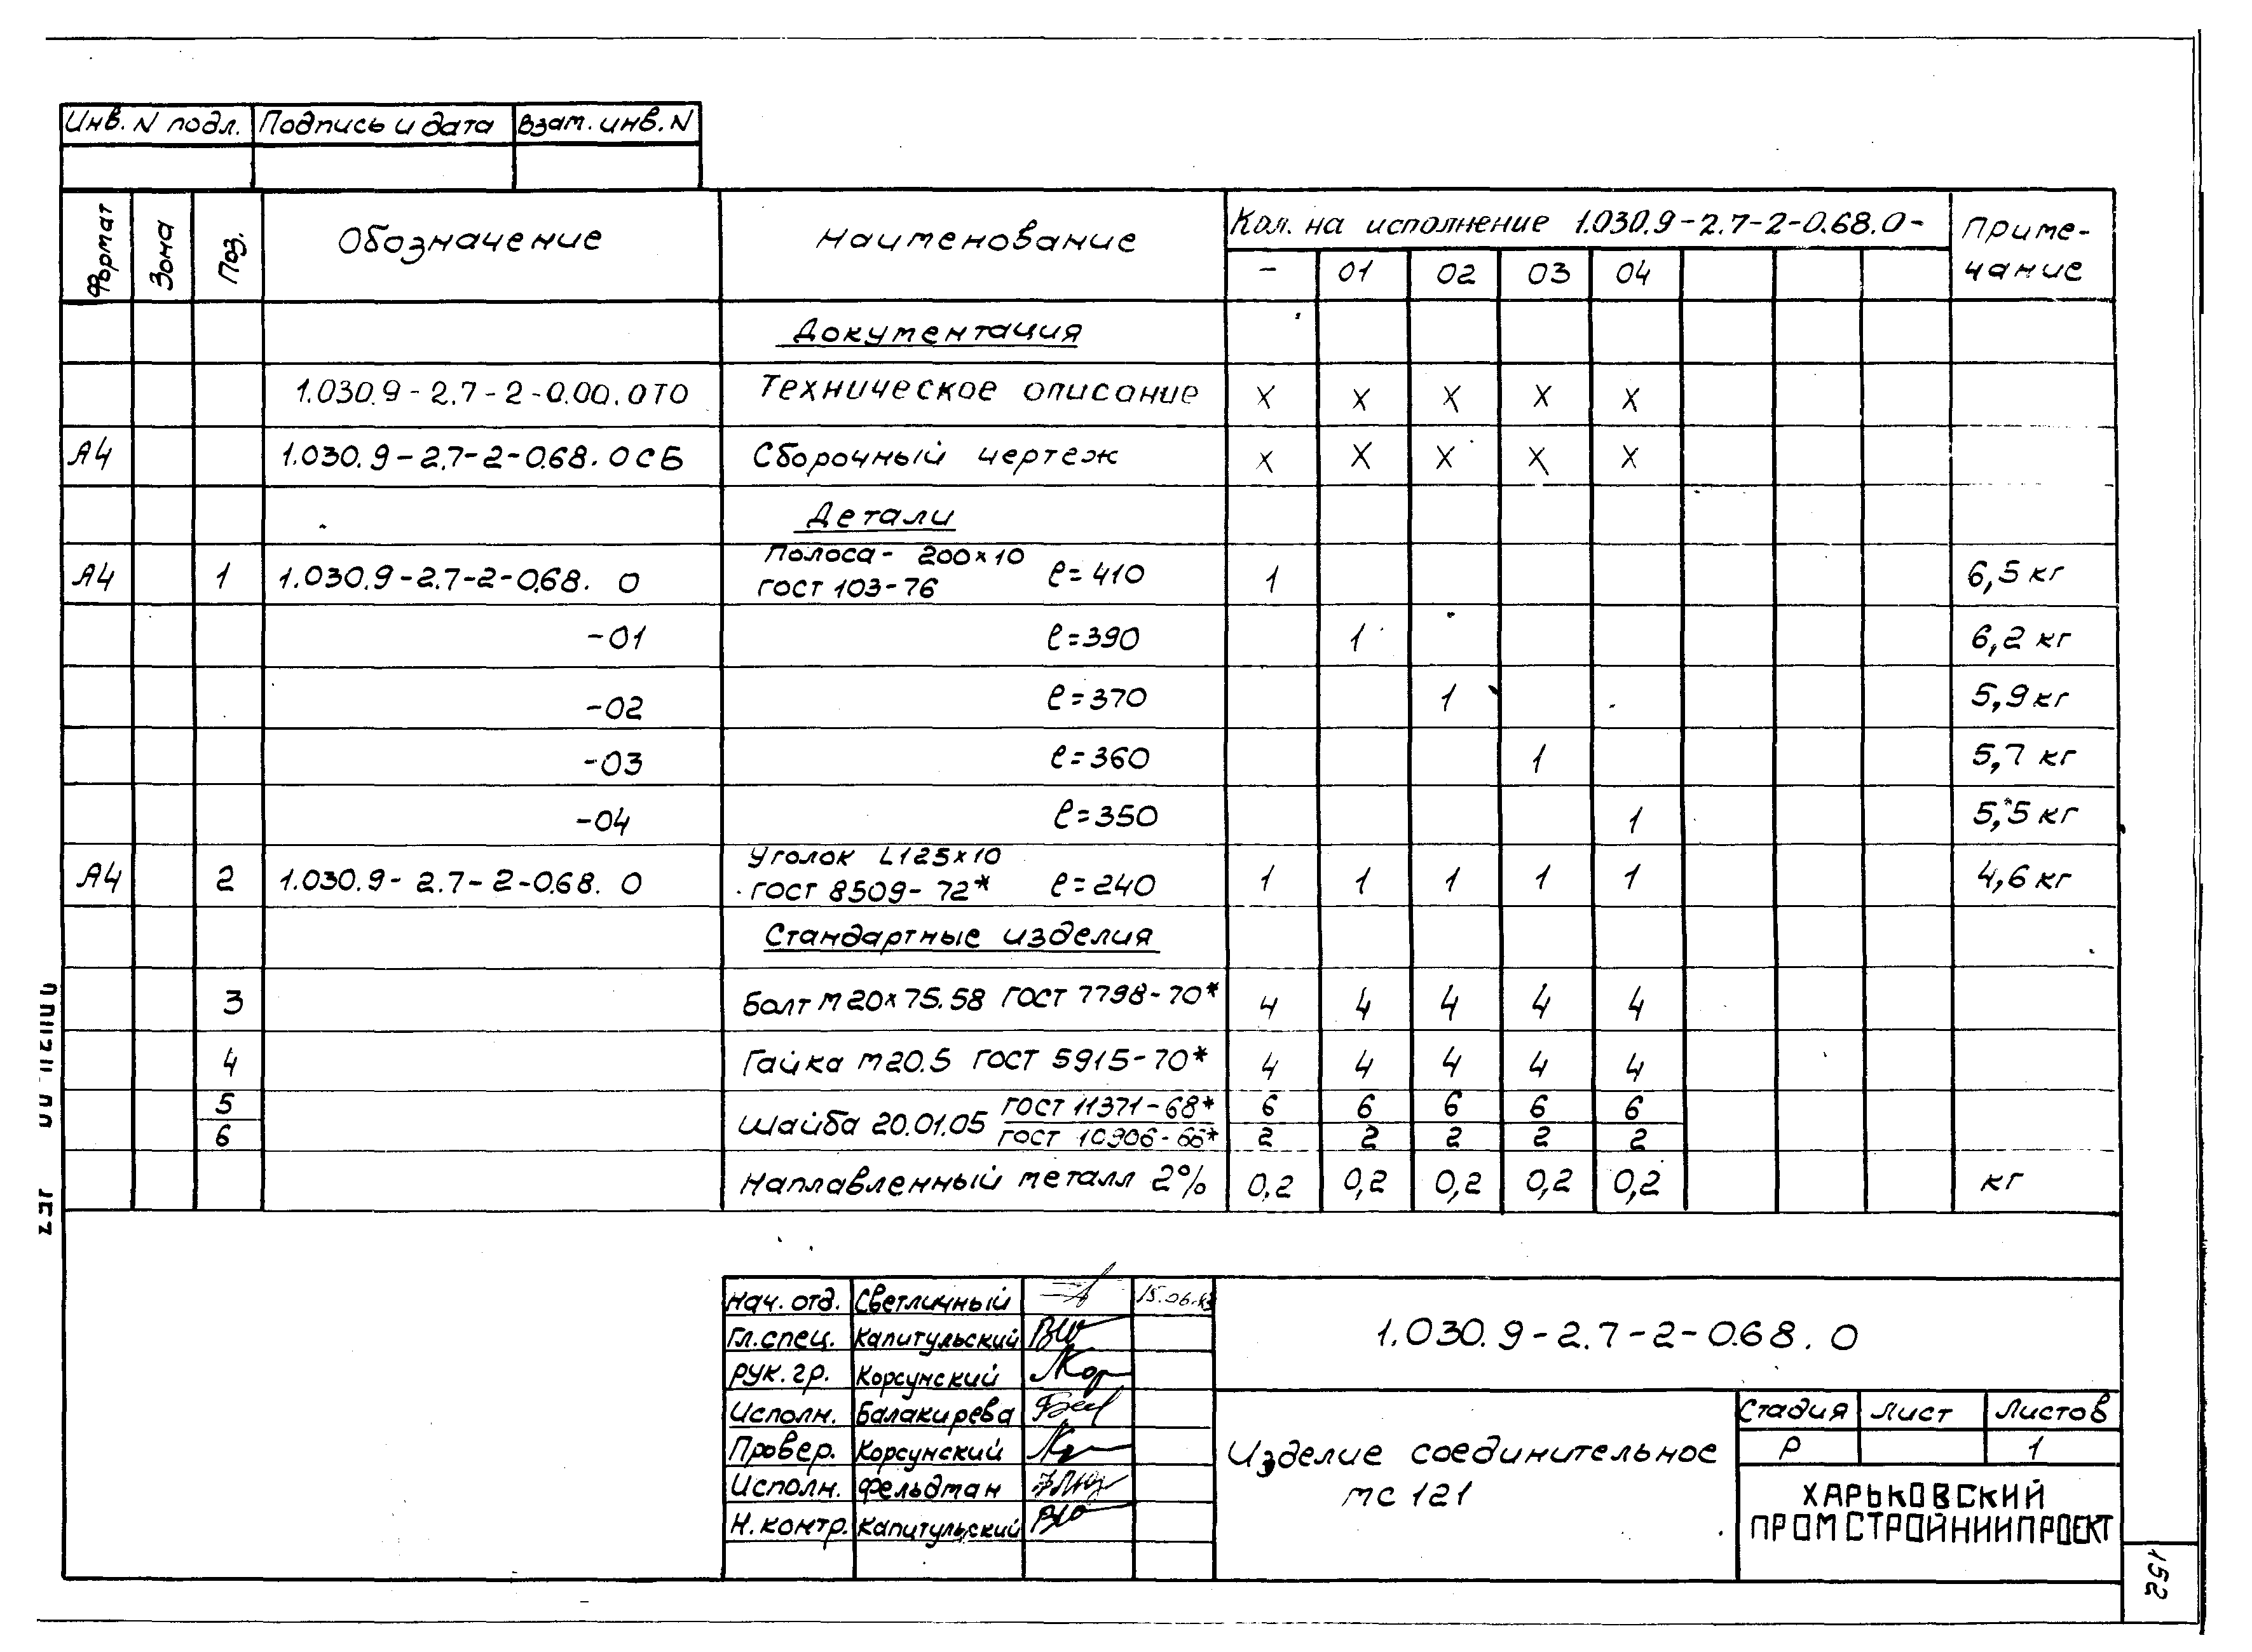 Инв. N подл. Подпись и дата Взам. инв. N
Формат Зона Поз. Обозначение Наименование Кол. на исполнение 1.030.9-2.7-2-0.68.0- Приме-
чание
- 01 02 03 04
Документация
1.030.9-2.7-2-0.00.0ТО Техническое описание X X X X X
А4 1.030.9-2.7-2-0.68.0СБ Сборочный чертеж X X X X X
Детали
Полоса - 200×10
А4 1 1.030.9-2.7-2-0.68. 0 ГОСТ 103-76 ℓ=410 1 6,5 кг
-01 ℓ=390 1 6,2 кг
-02 ℓ=370 1 5,9 кг
-03 ℓ=360 1 5,7 кг
-04 ℓ=350 1 5,5 кг
Уголок L125×10
А4 2 1.030.9-2.7-2-0.68. 0 ГОСТ 8509-72* ℓ=240 1 1 1 1 1 4,6 кг
Стандартные изделия
3 Болт М20×75.58 ГОСТ 7798-70* 4 4 4 4 4
4 Гайка М20.5 ГОСТ 5915-70* 4 4 4 4 4
5 Шайба 20.01.05 ГОСТ 11371-68* 6 6 6 6 6
6 ГОСТ 10906-66* 2 2 2 2 2
Наплавленный металл 2% 0,2 0,2 0,2 0,2 0,2 кг
Нач. отд. Светличный
Гл. спец. Капитульский
Рук. гр. Корсунский
Исполн. Балакирева
Провер. Корсунский
Исполн. Фельдман
Н. контр. Капитульский
1.030.9-2.7-2-0.68. 0
Изделие соединительное
МС 121
Стадия Лист Листов
Р 1
ХАРЬКОВСКИЙ
ПРОМСТРОЙНИИПРОЕКТ
152